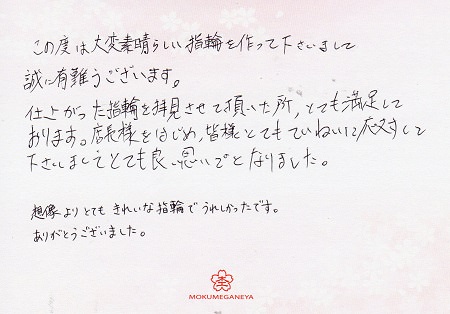 この度は大変素晴らしい指輪を作って下さいまして
誠に有難うございます。
仕上がった指輪を拝見させて頂いた所、とても満足して
おります。店長様をはじめ、皆様とてもていねいに応対して
下さいましてとても良い思いでとなりました。
想像よりとてもきれいな指輪でうれしかったです。
ありがとうございました。
MOKUMEGANEYA